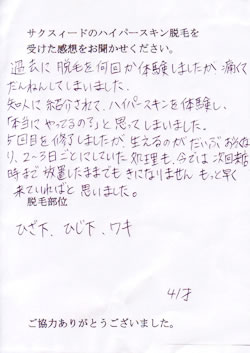 サクスィードのハイパースキン脱毛を
受けた感想をお聞かせください。
過去に脱毛を何回か体験しましたが、痛くて
だんねんしてしまいました。
知人に紹介されて、ハイパースキンを体験し、
「本当にやってるの?」と思ってしまいました。
5回目を修了しましたが、生えるのが だいぶおそくな
り、2~3日ごとにしていた処理も、今では次回来店
時まで放置したままでも きになりません もっと早く
来ていればと思いました。
脱毛部位
ひざ下、ひじ下、ワキ
41才
ご協力ありがとうございました。